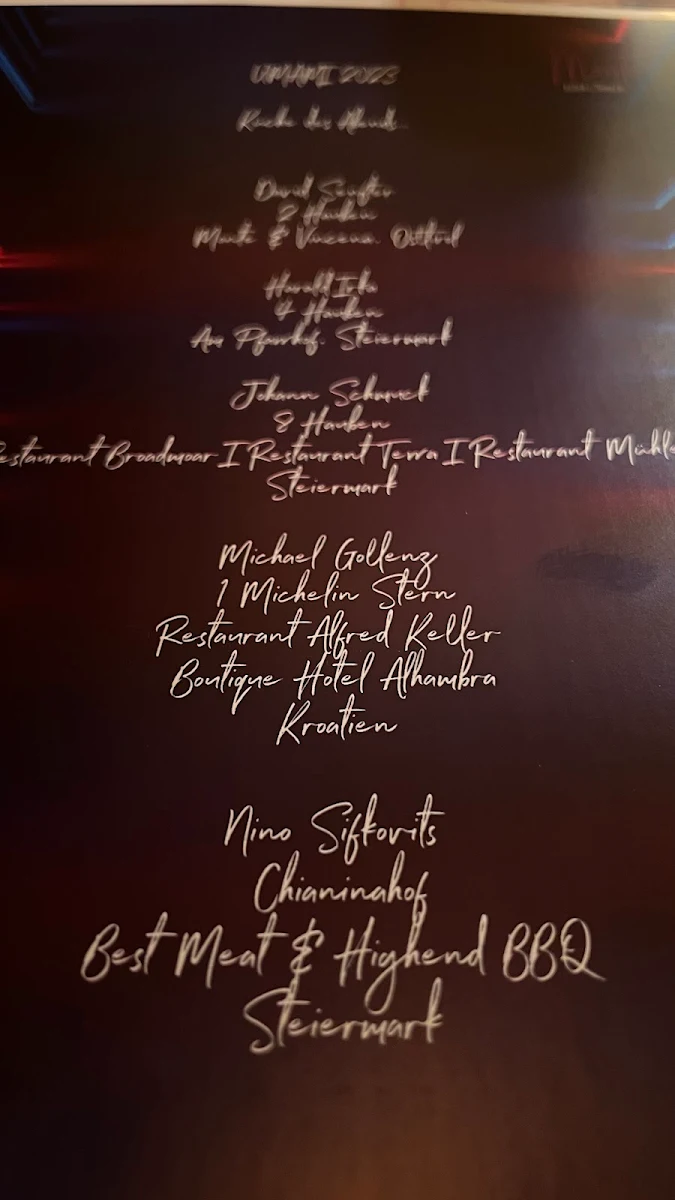 UMAMI 2023
Küche des Abends
David Senfter
2 Hauben
& Vinzenz. Osttirol
Harald Irka
4 Hauben
Am Pfarrhof. Steiermark
Johann Schmuck
8 Hauben
estaurant Broadmoar I Restaurant Terra I Restaurant Mühle
Steiermark
Michael Gollenz
1 Michelin Stern
Restaurant Alfred Keller
Boutique Hotel Alhambra
Kroatien
Nino Sifkovits
Chianinahof
Best Meat & Highend BBQ
Steiermark